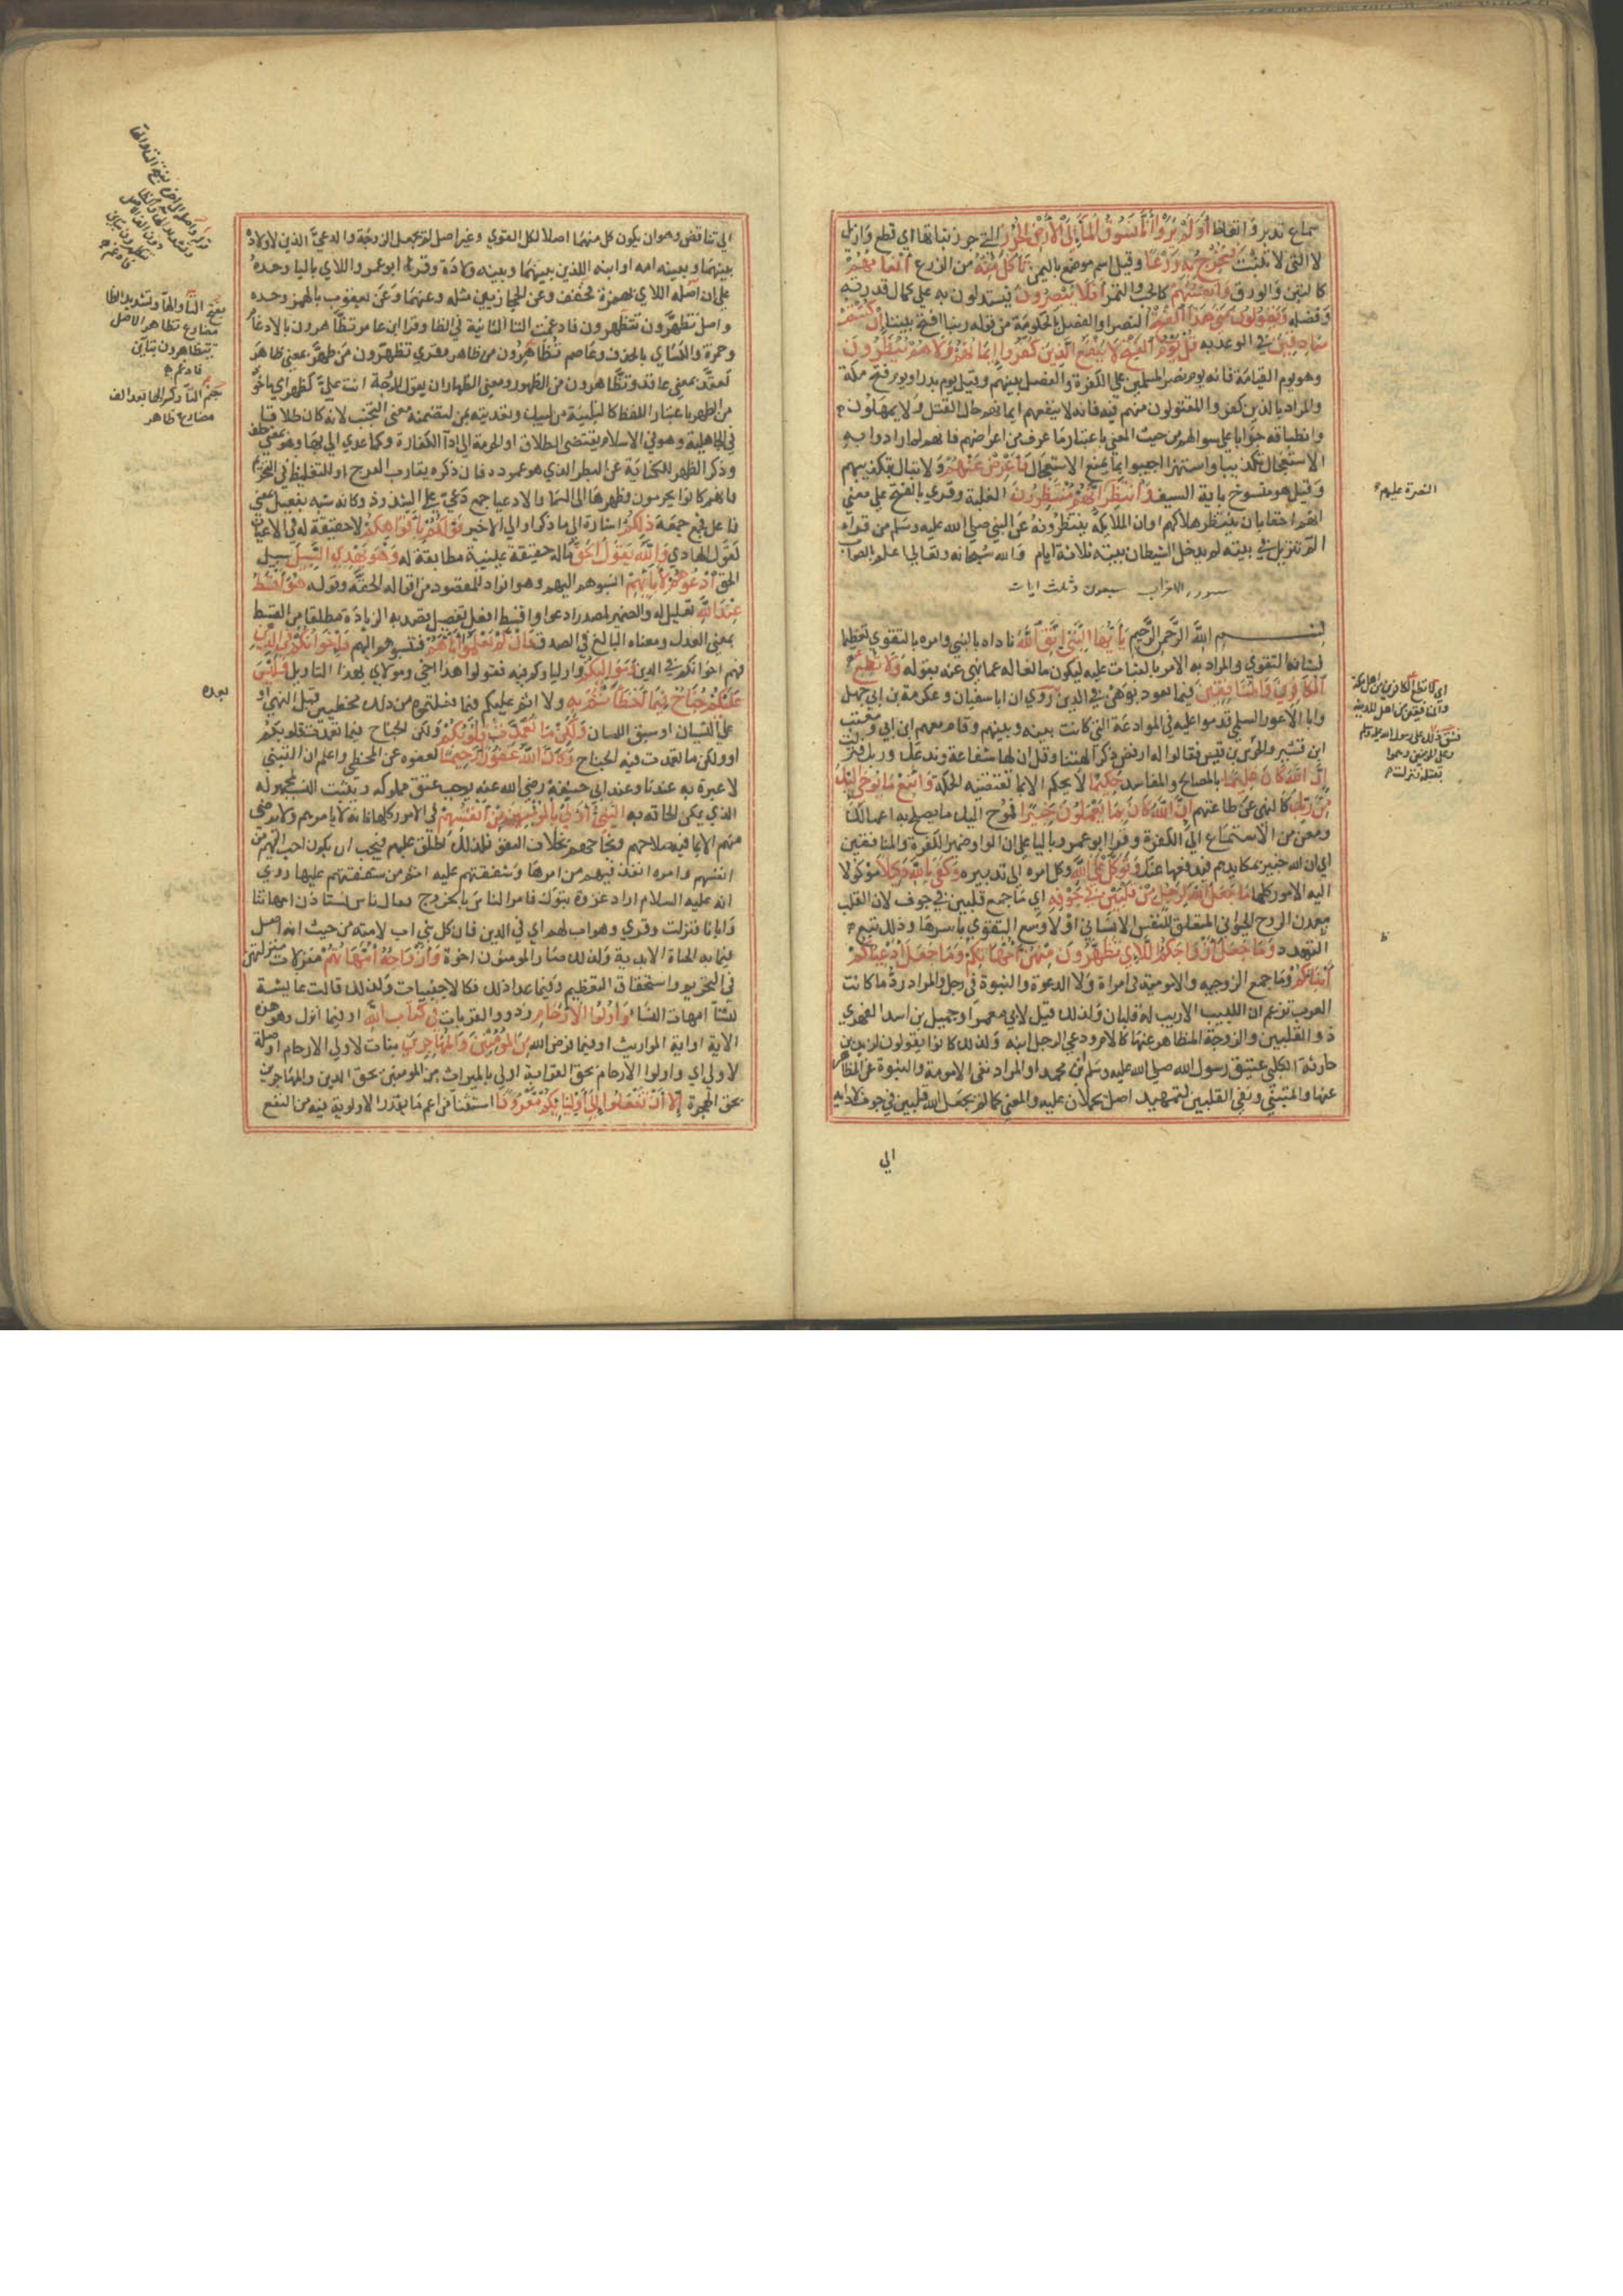 سماع تدبر واتعاظ أولم يروا أنا نسوق الماء إلى الأرض الجرز التي جرز نباتها اي قطع وازيل
لا التي لا تنبت لقوله فنخرج به زرعا وقيل اسم موضع باليمن تأكل منه من الزرع أنعامهم
كالتبن والورق وأنفسهم كالحب والثمر أفلا يبصرون فيستدلون به على كمال قدرته
وفضله ويقولون متى هذا الفتح النصر او الفصل بالحكومة من قوله ربنا افتح بيننا إن كنتم
صادقين في الوعد به قل يوم الفتح لا ينفع الذين كفروا إيمانهم ولا هم ينظرون
وهو يوم القيامة فانه يوم نصر المسلمين على الكفرة والفصل بينهم وقيل يوم بدر او يوم فتح مكة
والمراد بالذين كفروا المقتولون منهم فيه فانه لا ينفعهم ايمانهم حال القتل ولا يمهلون
وانطباقه جوابا على سوالهم من حيث المعنى باعتبار ما عرف من اغراضهم فانهم لما ارادوا به
الاستعجال تكذيبا واستهزا اجيبوا بما يمنع الاستعجال فأعرض عنهم ولا تبال بتكذيبهم
وقيل هو منسوخ باية السيف وانتظر إنهم منتظرون الغلبة وقري بالفتح على معنى
انهم احقا بان ينتظر هلاكهم او ان الملايكة ينتظرونه عن النبي صلى الله عليه وسلم من قراء
الم تنزيل في بيته لم يدخل الشيطان بيته ثلاثة ايام والله سبحانه وتعالى اعلم بالصواب
سورة الاحزاب سبعون وثلث ايات
بسم الله الرحمن الرحيم يا أيها النبي اتق الله ناداه بالنبي وامره بالتقوى تعظيما
لشان التقوى والمراد به الامر بالثبات عليه ليكون مانعا له عما نهي عنه بقوله ولا تطع
الكافرين والمنافقين فيما يعود بوهن في الدين روي ان ابا سفيان وعكرمة بن ابي جهل
وابا الاعور السلمي قدموا عليه في الموادعة التي كانت بينه وبينهم وقام معهم ابن ابي ومعتب
ابن قشير والجد بن قيس فقالوا له ارفض ذكر الهتنا وقل ان لها شفاعة وندعك وربك فنزلت
إن الله كان عليما بالمصالح والمفاسد حكيما لا يحكم الا بما تقتضيه الحكمة واتبع ما يوحى إليك
من ربك كالنهي عن طاعتهم إن الله كان بما تعملون خبيرا فموح اليك ما يصلح به اعمالك
ومغن من الاستماع الى الكفرة وقرا ابو عمرو باليا على ان الواو ضمير الكفرة والمنافقين
اي ان الله خبير بمكايدهم فيدفعها عنك وتوكل على الله وكل امره الى تدبيره وكفى بالله وكيلا موكولا
اليه الامور كلها ما جعل الله لرجل من قلبين في جوفه اي ما جمع قلبين في جوف لان القلب
معدن الروح الحيواني المتعلق للنفس الانساني اولا ومنبع القوى باسرها وذلك يمنع
التعدد وما جعل أزواجكم اللائي تظهرون منهن أمهاتكم وما جعل أدعياءكم
أبناءكم وما جمع الزوجية والامومة في امراة ولا الدعوة والبنوة في رجل والمراد رد ما كانت
العرب تزعم ان اللبيب الاريب له قلبان ولذلك قيل لابي معمر او جميل بن اسد الفهري
ذو القلبين والزوجة المظاهر عنها كالام ودعي الرجل ابنه ولذلك كانوا يقولون لزيد بن
حارثة الكلبي عتيق رسول الله صلى الله عليه وسلم ابن محمد او المراد نفي الامومة والبنوة عن المظاهر
عنها والمتبنى ونفي القلبين لتمهيد اصل يحملان عليه والمعنى كما لم يجعل الله قلبين في جوف لادايه
الى
النصرة عليهم
الى تناقض وهو ان يكون كل منهما اصلا لكل القوي وغير اصل لم يجعل الزوجة والدعي الذين لا ولادة
بينهما وبينه امه او ابنه اللذين بينهما وبينه ولادة وقرا ابو عمرو اللاي باليا وحده
على ان اصله اللاي بهمزة فخففت وعن الحجازيين مثله وعنهما وعن يعقوب بالهمز وحده
واصل تظهرون تتظهرون فادغمت التا الثانية في الظا وقرا ابن عامر تظاهرون بالادغام
وحمزة والكساي بالحذف وعاصم تظاهرون من ظاهر وقري تظهرون من ظهر بمعنى ظاهر
كعقد بمعنى عاقد وتظاهرون من الظهور ومعنى الظهار ان يقول للزوجة انت علي كظهر امي ماخوذ
من الظهر باعتبار اللفظ كالتلبية من لبيك وتعديته بمن لتضمنه معنى التجنب لانه كان طلاقا
في الجاهلية وهو في الاسلام يقتضي الطلاق او الحرمة الى ادا الكفارة وكما عدي الى بها وهو بمعنى حلف
وذكر الظهر للكناية عن البطن الذي هو عموده فان ذكره يقارب الفرج او للتغليظ في التحريم
فانهم كانوا يحرمون ظهرها الى السما والادعيا جمع دعي على الشذوذ وكانه شبه بفعيل بمعنى
فاعل فجمع جمعه ذلكم اشارة الى ما ذكر او الى الاخير قولكم بأفواهكم لا حقيقة له في الاعيان
كقول الهاذي والله يقول الحق ما له حقيقة عينية مطابقة له وهو يهدي السبيل سبيل
الحق ادعوهم لآبائهم انسبوهم اليهم وهو افراد للمقصود من اقواله الحقة وقوله هو أقسط
عند الله تعليل له والضمير لمصدر ادعوا واقسط افعل تفضيل قصد به الزيادة مطلقا من القسط
بمعنى العدل ومعناه البالغ في الصدق فإن لم تعلموا آباءهم فتنسبوهم اليهم فإخوانكم في الدين
فهم اخوانكم في الدين ومواليكم واولياؤكم فيه فقولوا هذا اخي ومولاي بهذا التاويل وليس
عليكم جناح فيما أخطأتم به ولا اثم عليكم فيما فعلتموه من ذلك مخطيين قبل النهي او
على النسيان او سبق اللسان ولكن ما تعمدت قلوبكم ولكن الجناح فيما تعمدت قلوبكم
او ولكن ما تعمدت فيه الجناح وكان الله غفورا رحيما لعفوه عن المخطي واعلم ان التبني
لا عبرة به عندنا وعند ابي حنيفة رضي الله عنه يوجب عتق مملوكه ويثبت النسب لمجهوله
الذي يمكن الحاقه به النبي أولى بالمؤمنين من أنفسهم في الامور كلها فانه لا يامرهم ولا يرضى
منهم الا بما فيه صلاحهم ونجاحهم بخلاف النفس فلذلك اطلق عليهم فيجب ان يكون احب اليهم من
انفسهم وامره انفذ فيهم من امرها وشفقته عليهم اتم من شفقتهم عليها روي
انه عليه السلام اراد غزوة تبوك فامر الناس بالخروج فقال ناس نستاذن امهاتنا
واباءنا فنزلت وقري وهو اب لهم اي في الدين فان كل نبي اب لامته من حيث انه اصل
فيما به الحياة الابدية ولذلك صار المومنون اخوة وأزواجه أمهاتهم منزلات منزلتهن
في التحريم واستحقاق التعظيم وفيما عدا ذلك فكالاجنبيات ولذلك قالت عايشة
لسنا امهات النسا وأولوا الأرحام وذووا القرابات في كتاب الله او فيما انزل وهو هذه
الاية او اية المواريث او فيما فرض الله من المؤمنين والمهاجرين بيان لاولي الارحام او صلة
لاولى اي واولوا الارحام بحق القرابة اولى بالميراث من المومنين بحق الدين والمهاجرين
بحق الهجرة إلا أن تفعلوا إلى أوليائكم معروفا استثنا من اعم ما يقدر الاولوية فيه من النفع
بفتح التا والها وتشديد الظا
مضارع تظاهر الاصل
تتظاهرون بتاين
فادغم
بضم التا وكسر الها بعد الف
مضارع ظاهر
بعده